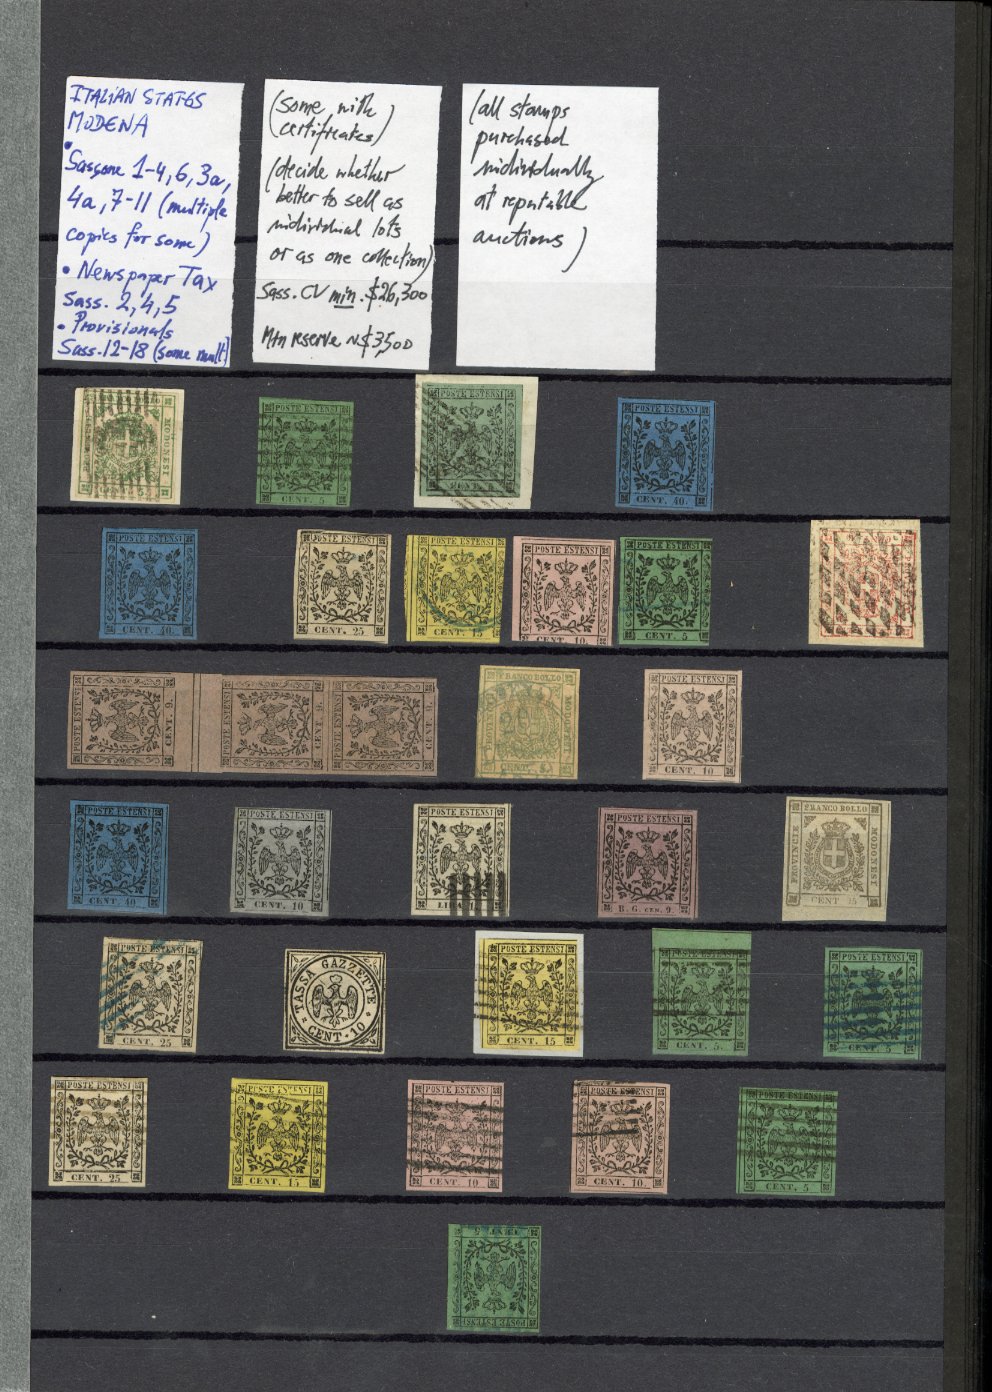 ITALIAN STATES
MODENA
• Sassone 1-4, 6, 3a,
4a, 7-11 (multiple
copies for some)
• Newspaper Tax
Sass. 2, 4, 5
• Provisionals
Sass. 12-18 (some mult)
(some with
certificates)
(decide whether
better to sell as
individual lots
or as one collection)
Sass. CV min. $26,300
Min reserve ~$3,500
(all stamps
purchased
individually
at reputable
auctions)
MODONESI
POSTE ESTENSI
CENT. 5
POSTE ESTENSI
POSTE ESTENSI
CENT. 40.
POSTE ESTENSI
CENT. 40.
POSTE ESTENSI
CENT. 25
POSTE ESTENSI
CENT. 15
POSTE ESTENSI
CENT. 10
POSTE ESTENSI
CENT. 5
POSTE ESTENSI
CENT. 9.
POSTE ESTENSI
CENT. 9.
POSTE ESTENSI
CENT. 9.
FRANCO BOLLO
POSTE ESTENSI
CENT. 10
POSTE ESTENSI
CENT. 40
POSTE ESTENSI
CENT. 10
POSTE ESTENSI
POSTE ESTENSI
B. G. CEN. 9.
FRANCO BOLLO
PROVINCIE
MODONESI
POSTE ESTENSI
CENT. 25
TASSA GAZZETTE
CENT. 10
POSTE ESTENSI
CENT. 15
POSTE ESTENSI
CENT. 5.
POSTE ESTENSI
CENT. 5
POSTE ESTENSI
CENT. 25
POSTE ESTENSI
CENT. 15
POSTE ESTENSI
CENT. 10
POSTE ESTENSI
CENT. 10
POSTE ESTENSI
CENT. 5
POSTE ESTENSI